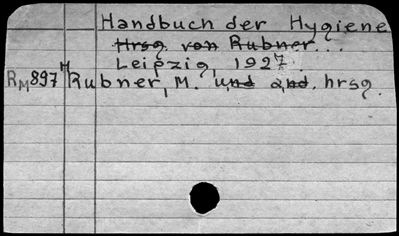 Handbuch der Hygiene
Hrsg. von Rubner...
Leipzig, 1927.
RM897 H Rubner, M. und and. hrsg.